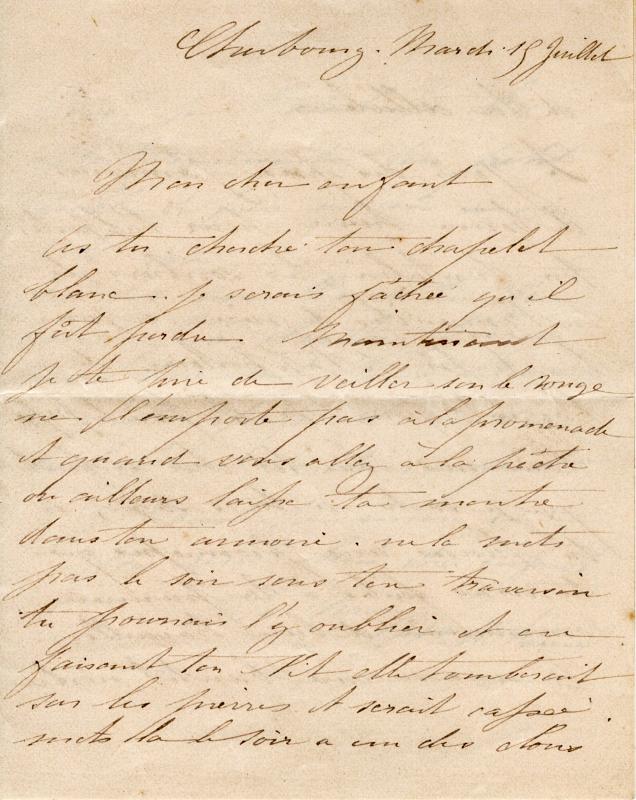 Cherbourg. Mardi 15 Juillet
Mon cher enfant
As tu cherché ton chapelet
blanc. je serais fâchée qu'il
fût perdu. Maintenant
je te prie de veiller sur le rouge
ne l'emporte pas à la promenade
et quand vous allez à la pêche
ou ailleurs laisse ta montre
dans ton armoire. ne la mets
pas le soir sous ton traversin
tu pourrais l'y oublier et en
faisant ton lit elle tomberait
sur les pierres et serait cassée
mets la le soir a un des clous